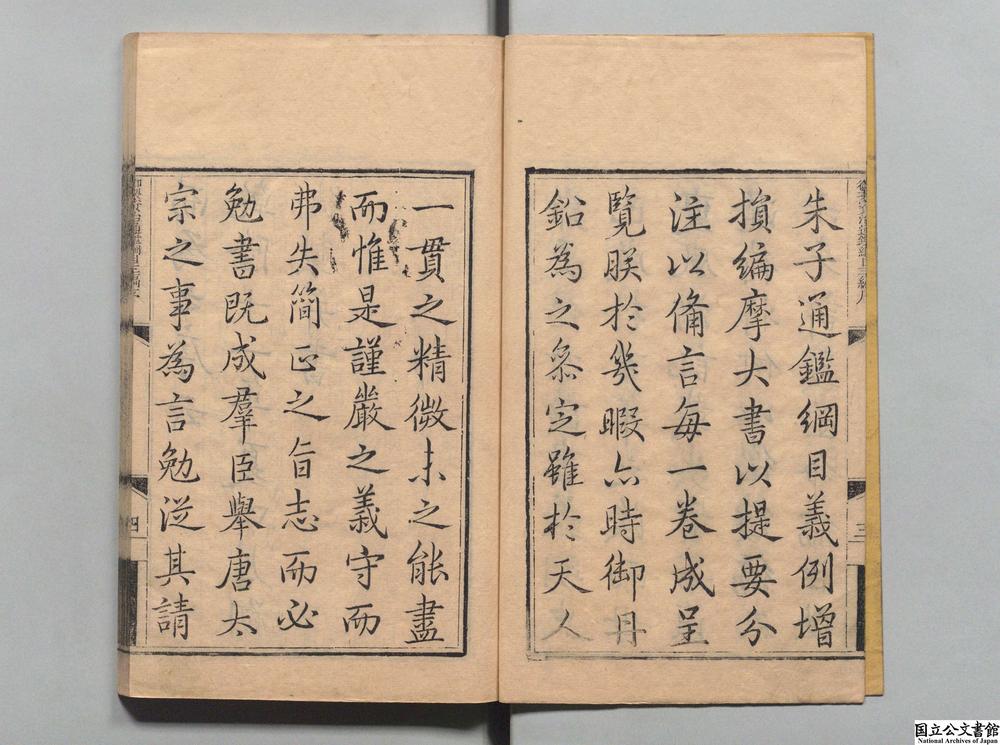 三
朱子通鑑綱目義例增
損編摩大書以提要分
注以備言每一卷成呈
覽朕於幾暇亦時御丹
鉛為之叅定雖於天人
一貫之精微未之能盡
而惟是謹嚴之義守而
弗失簡正之旨志而必
勉書既成羣臣舉唐太
宗之事為言勉從其請
四
国立公文書館
National Archives of Japan